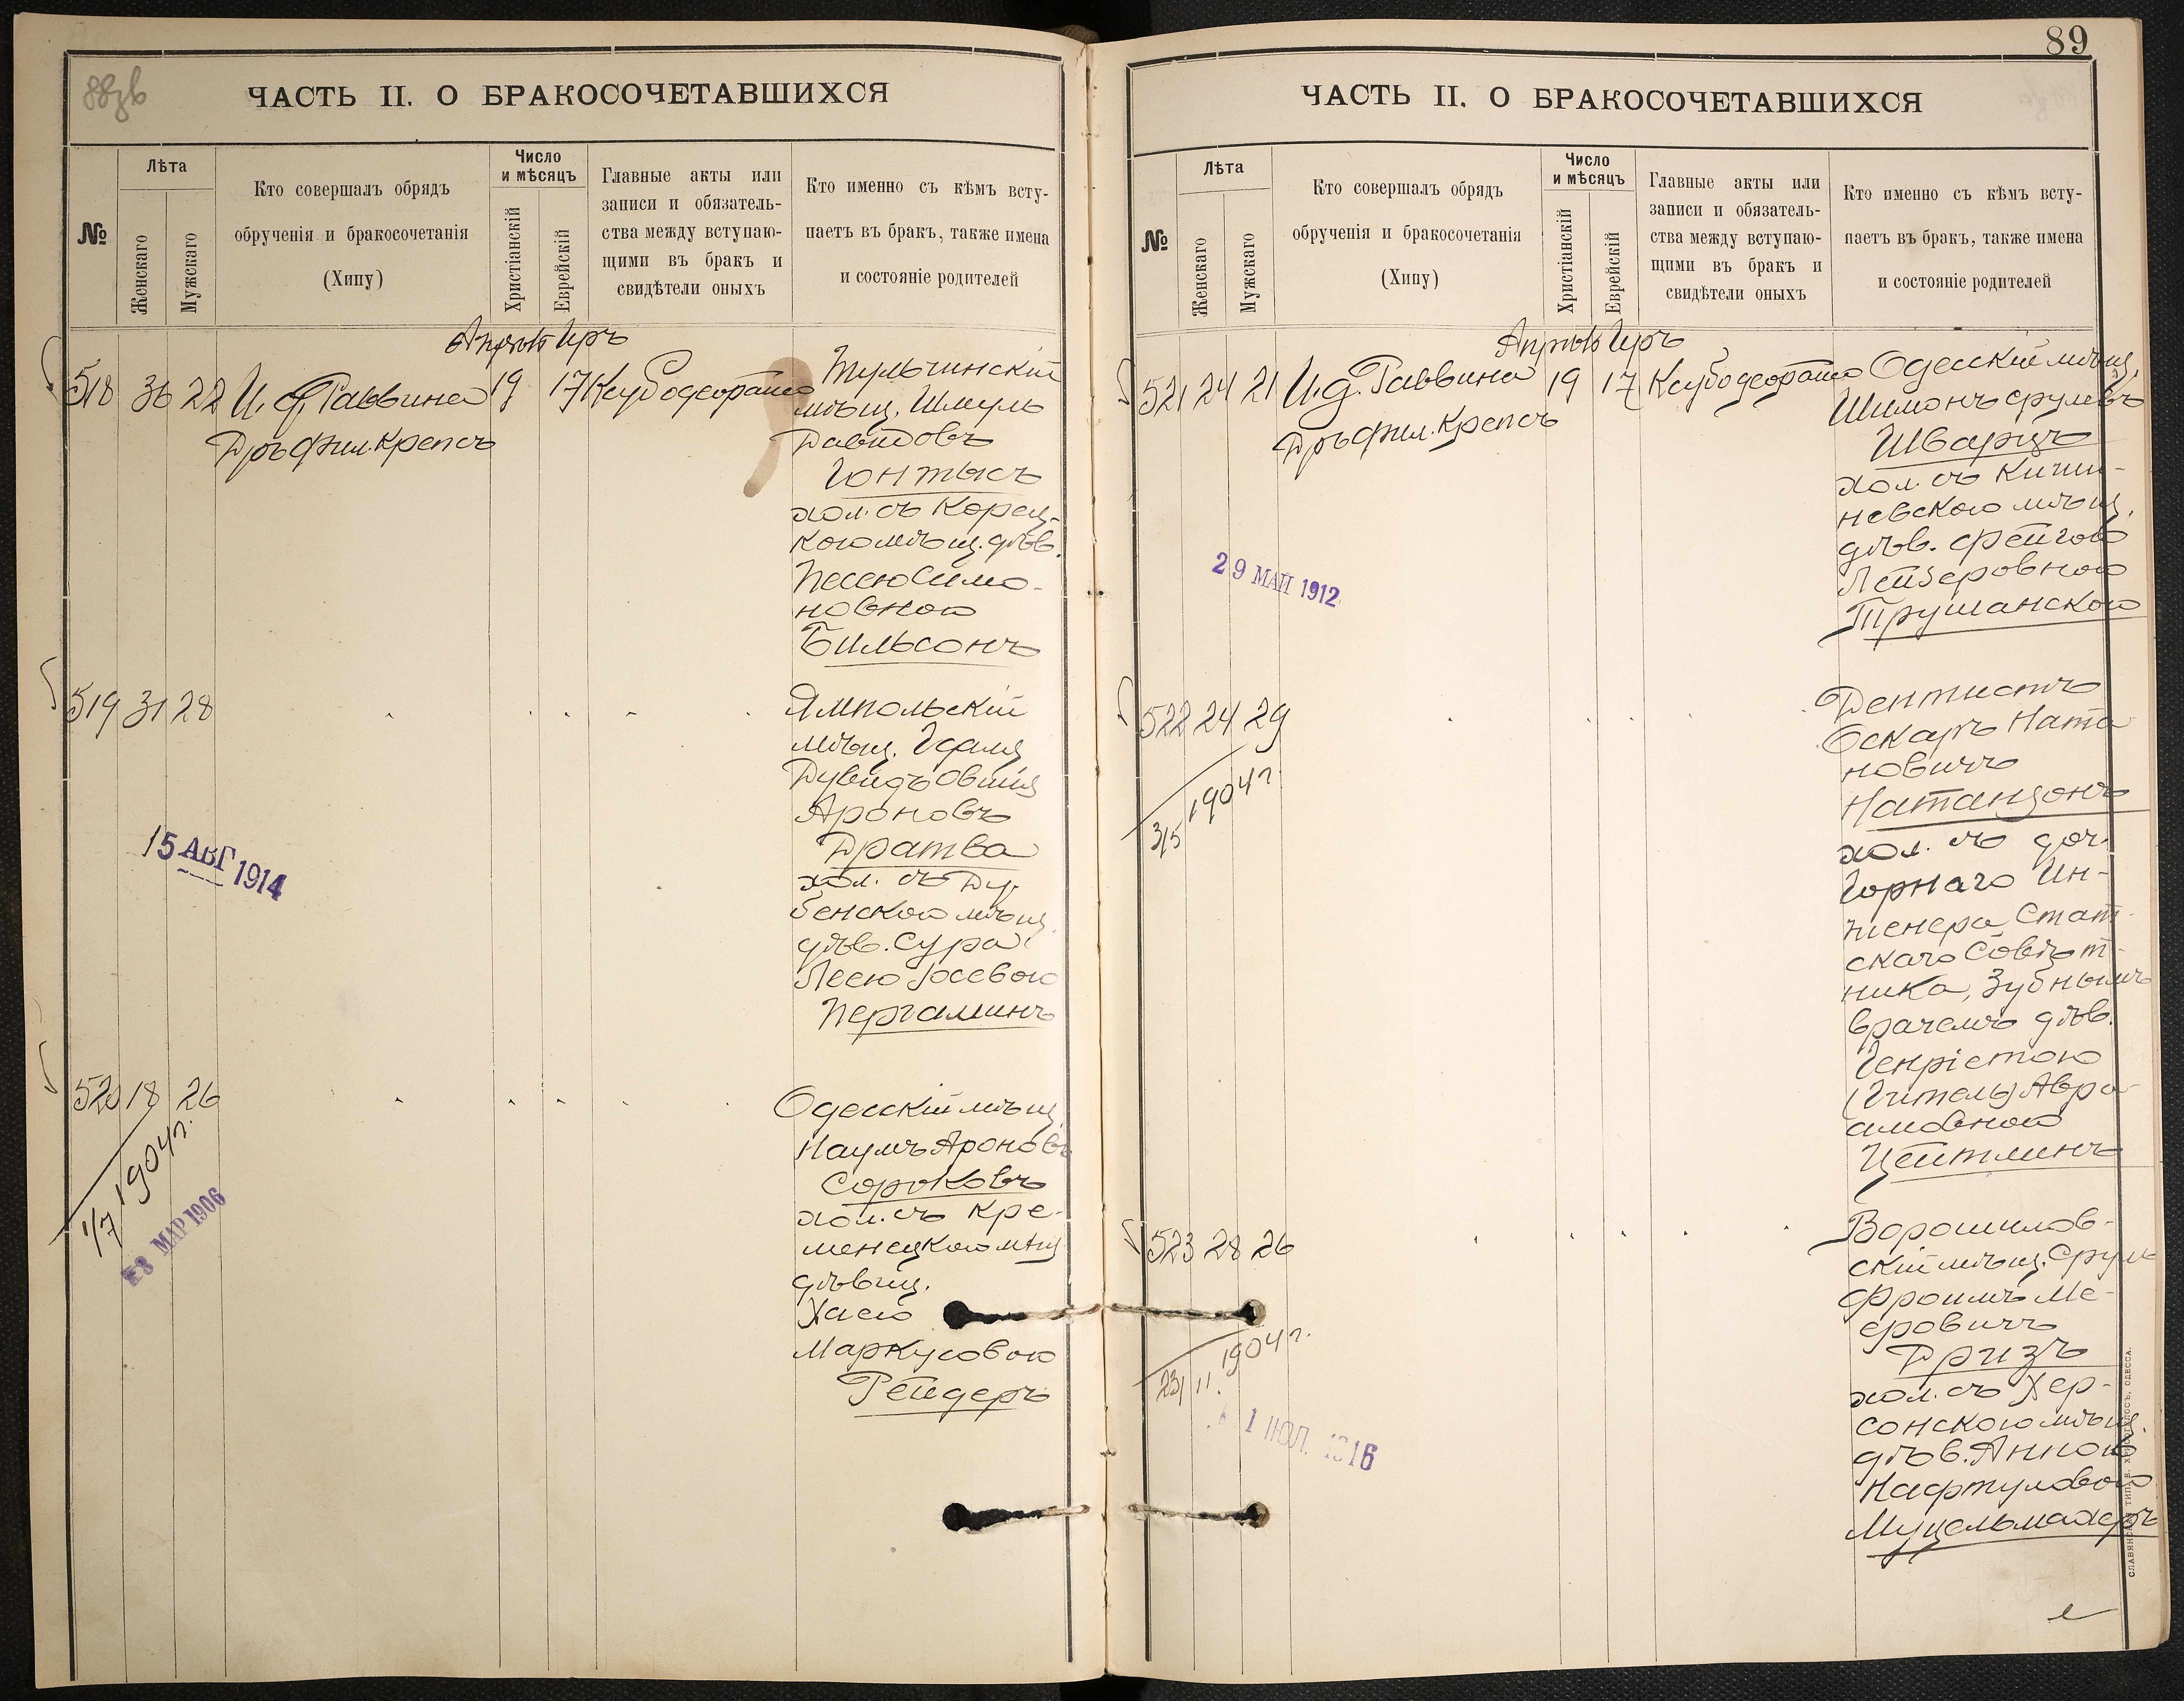 88зв
ЧАСТЬ II. О БРАКОСОЧЕТАВШИХСЯ
№
Лѣта
Женскаго
Мужскаго
Кто совершалъ обрядъ
обрученія и бракосочетанія
(Хипу)
Число
и мѣсяцъ
Христіанскій
Еврейскій
Главные акты или
записи и обязатель-
ства между вступаю-
щими въ бракъ и
свидѣтели оныхъ
Кто именно съ кѣмъ всту-
паетъ въ бракъ, также имена
и состояніе родителей
Апрѣль Иръ
518 36 22 И. д. Раввина 19 17
Дръ фил. Крепсъ
Тульчинскій
мѣщ. Шмуль
Давидовъ
Гонтысъ
хол. съ Корец-
кою мѣщ. дѣв.
Песею Симо-
новною
Бильсонъ
519 31 28
Ямпольскій
мѣщ. Гедаля
Дувидъ Овшія
Ароновъ
Дратва
хол. съ Ду-
бенскою мѣщ.
дѣв. Сура
Лею Іосевою
Пергаминъ
15 АВГ 1914
520 18 26
Одесскій мѣщ.
Наумъ Ароновъ
Сороковъ
хол. съ Кре-
менецкою мѣщ
дѣвиц.
Хаею
Маркусовою
Рейдеръ
1/7 1904 г.
28 МАР 1906
89
ЧАСТЬ II. О БРАКОСОЧЕТАВШИХСЯ
№
Лѣта
Женскаго
Мужскаго
Кто совершалъ обрядъ
обрученія и бракосочетанія
(Хипу)
Число
и мѣсяцъ
Христіанскій
Еврейскій
Главные акты или
записи и обязатель-
ства между вступаю-
щими въ бракъ и
свидѣтели оныхъ
Кто именно съ кѣмъ всту-
паетъ въ бракъ, также имена
и состояніе родителей
Апрѣль Иръ
521 24 21 И. д. Раввина 19 17
Дръ фил. Крепсъ
Одесскій мѣщ.
Шимонъ Срулевъ
Шварцъ
хол. съ Киши-
невскою мѣщ.
дѣв. Фейгою
Лейзеровною
Трушанскою
29 МАЙ 1912
522 24 29
Дентистъ
Оскаръ Ната
новичъ
Натанзонъ
хол. съ доч.
Горнаго Ин-
женера, Стат-
скаго Совѣт-
ника, Зубнымъ
врачемъ дѣв.
Генріетою
(Гитель) Авра-
амовною
Цейтлинъ
3/5 1904 г.
523 28 26
Ворошилов-
скій мѣщ. Сруль
Фроимъ Ме-
еровичъ
Дризъ
хол. съ Хер-
сонскою мѣщ.
дѣв. Анною
Нафтуловою
Муцельмахеръ
23/11. 1904 г.
1 ІЮЛ. 1916
СЛАВЯНСКАЯ ТИП. Е. ХРИСОГЕЛОСЪ, ОДЕССА.